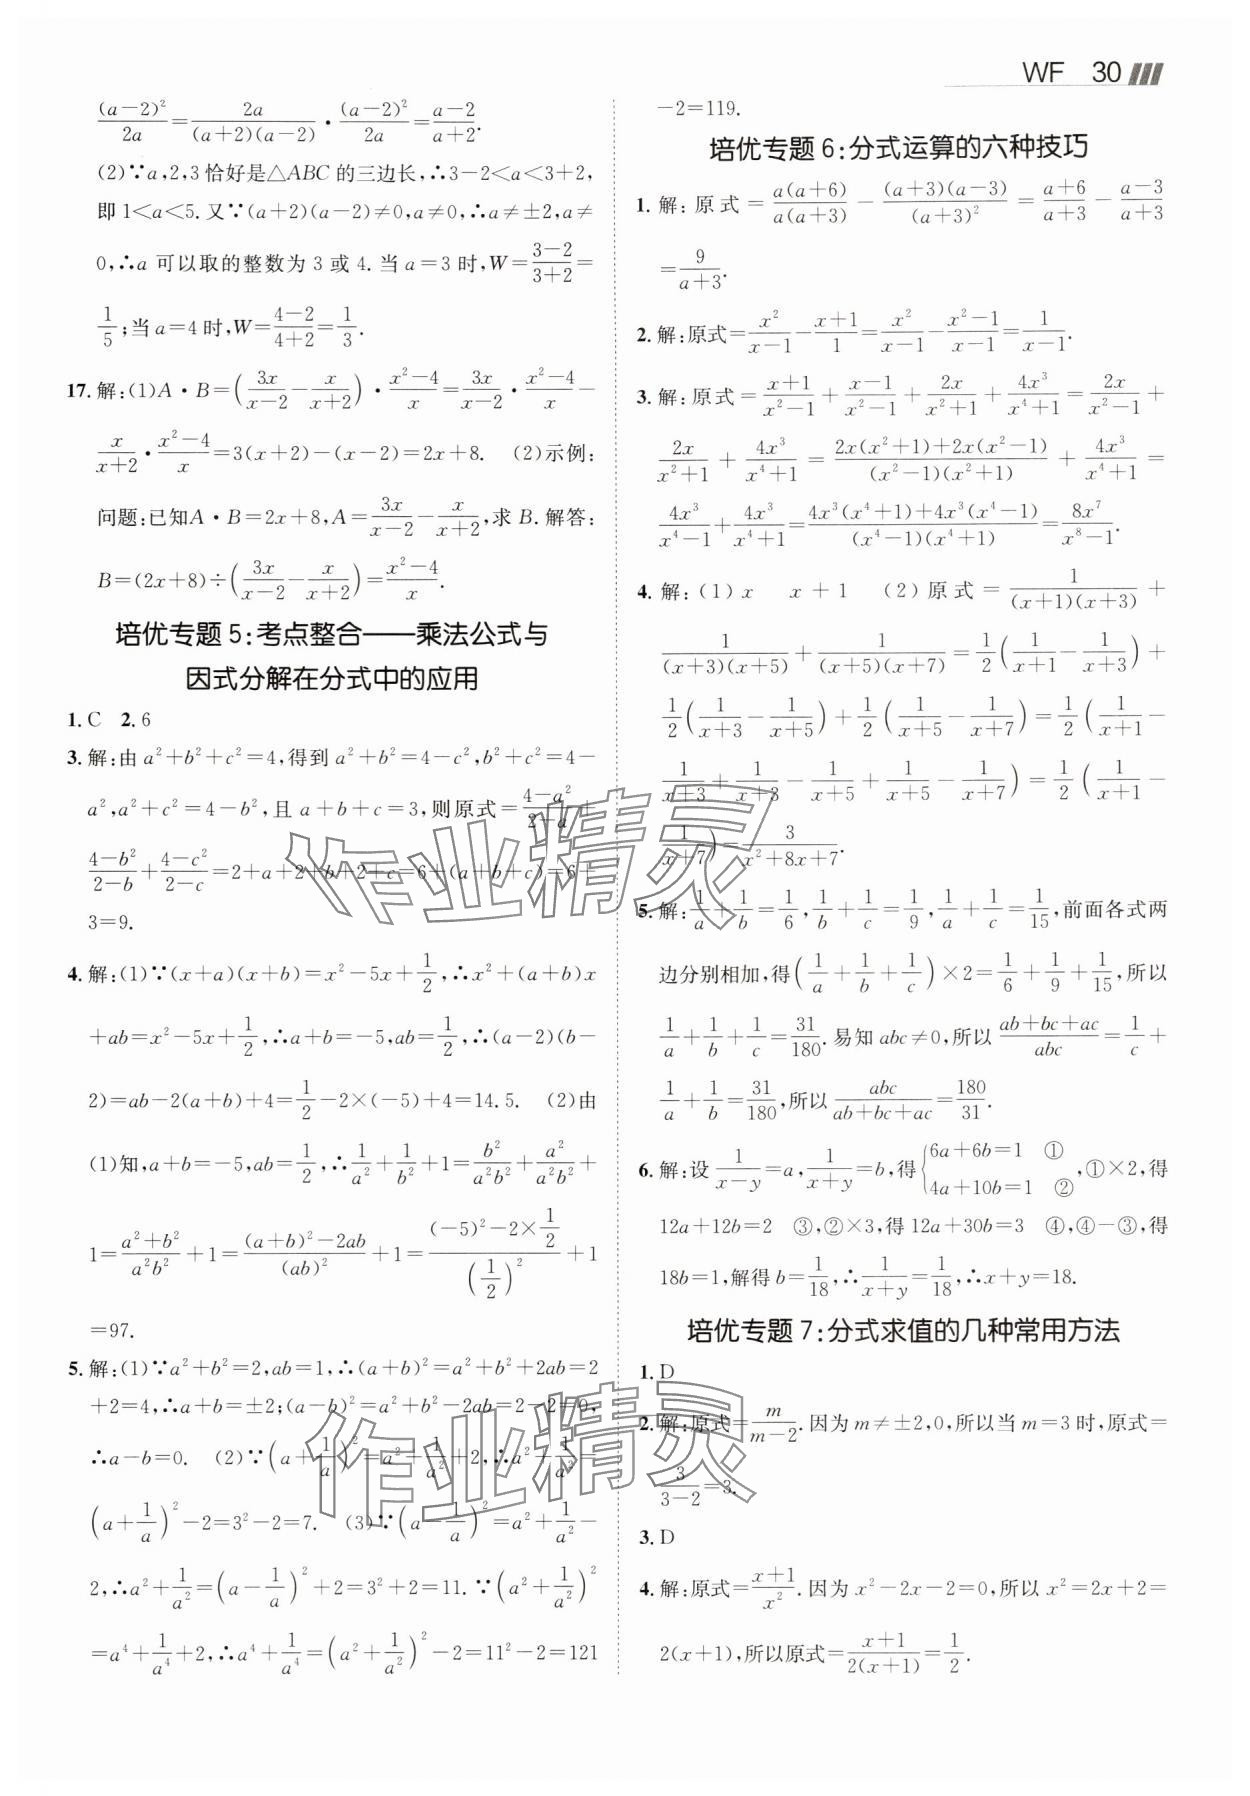 WF 30
\frac{(a-2)^2}{2a}=\frac{2a}{(a+2)(a-2)}·\frac{(a-2)^2}{2a}=\frac{a-2}{a+2}.
(2)∵a,2,3恰好是△ABC的三边长,∴3-2<a<3+2,
即1<a<5.又∵(a+2)(a-2)≠0,a≠0,∴a≠±2,a≠
0,∴a可以取的整数为3或4.当a=3时,W=\frac{3-2}{3+2}=
\frac{1}{5};当a=4时,W=\frac{4-2}{4+2}=\frac{1}{3}.
17.解:(1)A·B=(\frac{3x}{x-2}-\frac{x}{x+2})·\frac{x^2-4}{x}=\frac{3x}{x-2}·\frac{x^2-4}{x}-
\frac{x}{x+2}·\frac{x^2-4}{x}=3(x+2)-(x-2)=2x+8. (2)示例:
问题:已知A·B=2x+8,A=\frac{3x}{x-2}-\frac{x}{x+2},求B.解答:
B=(2x+8)÷(\frac{3x}{x-2}-\frac{x}{x+2})=\frac{x^2-4}{x}.
培优专题5:考点整合——乘法公式与
因式分解在分式中的应用
1.C 2.6
3.解:由a^2+b^2+c^2=4,得到a^2+b^2=4-c^2,b^2+c^2=4-
a^2,a^2+c^2=4-b^2,且a+b+c=3,则原式=\frac{4-a^2}{2-a}+
\frac{4-b^2}{2-b}+\frac{4-c^2}{2-c}=2+a+2+b+2+c=6+(a+b+c)=6+
3=9.
4.解:(1)∵(x+a)(x+b)=x^2-5x+\frac{1}{2},∴x^2+(a+b)x
+ab=x^2-5x+\frac{1}{2},∴a+b=-5,ab=\frac{1}{2},∴(a-2)(b-
2)=ab-2(a+b)+4=\frac{1}{2}-2×(-5)+4=14.5. (2)由
(1)知,a+b=-5,ab=\frac{1}{2},∴\frac{1}{a^2}+\frac{1}{b^2}+1=\frac{b^2}{a^2b^2}+\frac{a^2}{a^2b^2}+
1=\frac{a^2+b^2}{a^2b^2}+1=\frac{(a+b)^2-2ab}{(ab)^2}+1=\frac{(-5)^2-2×\frac{1}{2}}{(\frac{1}{2})^2}+1
=97.
5.解:(1)∵a^2+b^2=2,ab=1,∴(a+b)^2=a^2+b^2+2ab=2
+2=4,∴a+b=±2;(a-b)^2=a^2+b^2-2ab=2-2=0,
∴a-b=0. (2)∵(a+\frac{1}{a})^2=a^2+\frac{1}{a^2}+2,∴a^2+\frac{1}{a^2}=
(a+\frac{1}{a})^2-2=3^2-2=7. (3)∵(a-\frac{1}{a})^2=a^2+\frac{1}{a^2}-
2,∴a^2+\frac{1}{a^2}=(a-\frac{1}{a})^2+2=3^2+2=11.∵(a^2+\frac{1}{a^2})^2
=a^4+\frac{1}{a^4}+2,∴a^4+\frac{1}{a^4}=(a^2+\frac{1}{a^2})^2-2=11^2-2=121
-2=119.
培优专题6:分式运算的六种技巧
1.解:原式=\frac{a(a+6)}{a(a+3)}-\frac{(a+3)(a-3)}{(a+3)^2}=\frac{a+6}{a+3}-\frac{a-3}{a+3}
=\frac{9}{a+3}.
2.解:原式=\frac{x^2}{x-1}-\frac{x+1}{1}=\frac{x^2}{x-1}-\frac{x^2-1}{x-1}=\frac{1}{x-1}.
3.解:原式=\frac{x+1}{x^2-1}+\frac{x-1}{x^2-1}+\frac{2x}{x^2+1}+\frac{4x^3}{x^4+1}=\frac{2x}{x^2-1}+
\frac{2x}{x^2+1}+\frac{4x^3}{x^4+1}=\frac{2x(x^2+1)+2x(x^2-1)}{(x^2-1)(x^2+1)}+\frac{4x^3}{x^4+1}=
\frac{4x^3}{x^4-1}+\frac{4x^3}{x^4+1}=\frac{4x^3(x^4+1)+4x^3(x^4-1)}{(x^4-1)(x^4+1)}=\frac{8x^7}{x^8-1}.
4.解:(1)x x+1 (2)原式=\frac{1}{(x+1)(x+3)}+
\frac{1}{(x+3)(x+5)}+\frac{1}{(x+5)(x+7)}=\frac{1}{2}(\frac{1}{x+1}-\frac{1}{x+3})+
\frac{1}{2}(\frac{1}{x+3}-\frac{1}{x+5})+\frac{1}{2}(\frac{1}{x+5}-\frac{1}{x+7})=\frac{1}{2}(\frac{1}{x+1}-
\frac{1}{x+3}+\frac{1}{x+3}-\frac{1}{x+5}+\frac{1}{x+5}-\frac{1}{x+7})=\frac{1}{2}(\frac{1}{x+1}-
\frac{1}{x+7})=\frac{3}{x^2+8x+7}.
5.解:\frac{1}{a}+\frac{1}{b}=\frac{1}{6},\frac{1}{b}+\frac{1}{c}=\frac{1}{9},\frac{1}{a}+\frac{1}{c}=\frac{1}{15},前面各式两
边分别相加,得(\frac{1}{a}+\frac{1}{b}+\frac{1}{c})×2=\frac{1}{6}+\frac{1}{9}+\frac{1}{15},所以
\frac{1}{a}+\frac{1}{b}+\frac{1}{c}=\frac{31}{180}.易知abc≠0,所以\frac{ab+bc+ac}{abc}=\frac{1}{c}+
\frac{1}{a}+\frac{1}{b}=\frac{31}{180},所以\frac{abc}{ab+bc+ac}=\frac{180}{31}.
6.解:设\frac{1}{x-y}=a,\frac{1}{x+y}=b,得{6a+6b=1 ① 4a+10b=1 ②,①×2,得
12a+12b=2 ③,②×3,得12a+30b=3 ④,④-③,得
18b=1,解得b=\frac{1}{18},∴\frac{1}{x+y}=\frac{1}{18},∴x+y=18.
培优专题7:分式求值的几种常用方法
1.D
2.解:原式=\frac{m}{m-2}.因为m≠±2,0,所以当m=3时,原式=
\frac{3}{3-2}=3.
3.D
4.解:原式=\frac{x+1}{x^2}.因为x^2-2x-2=0,所以x^2=2x+2=
2(x+1),所以原式=\frac{x+1}{2(x+1)}=\frac{1}{2}.
作业精灵
作业精灵